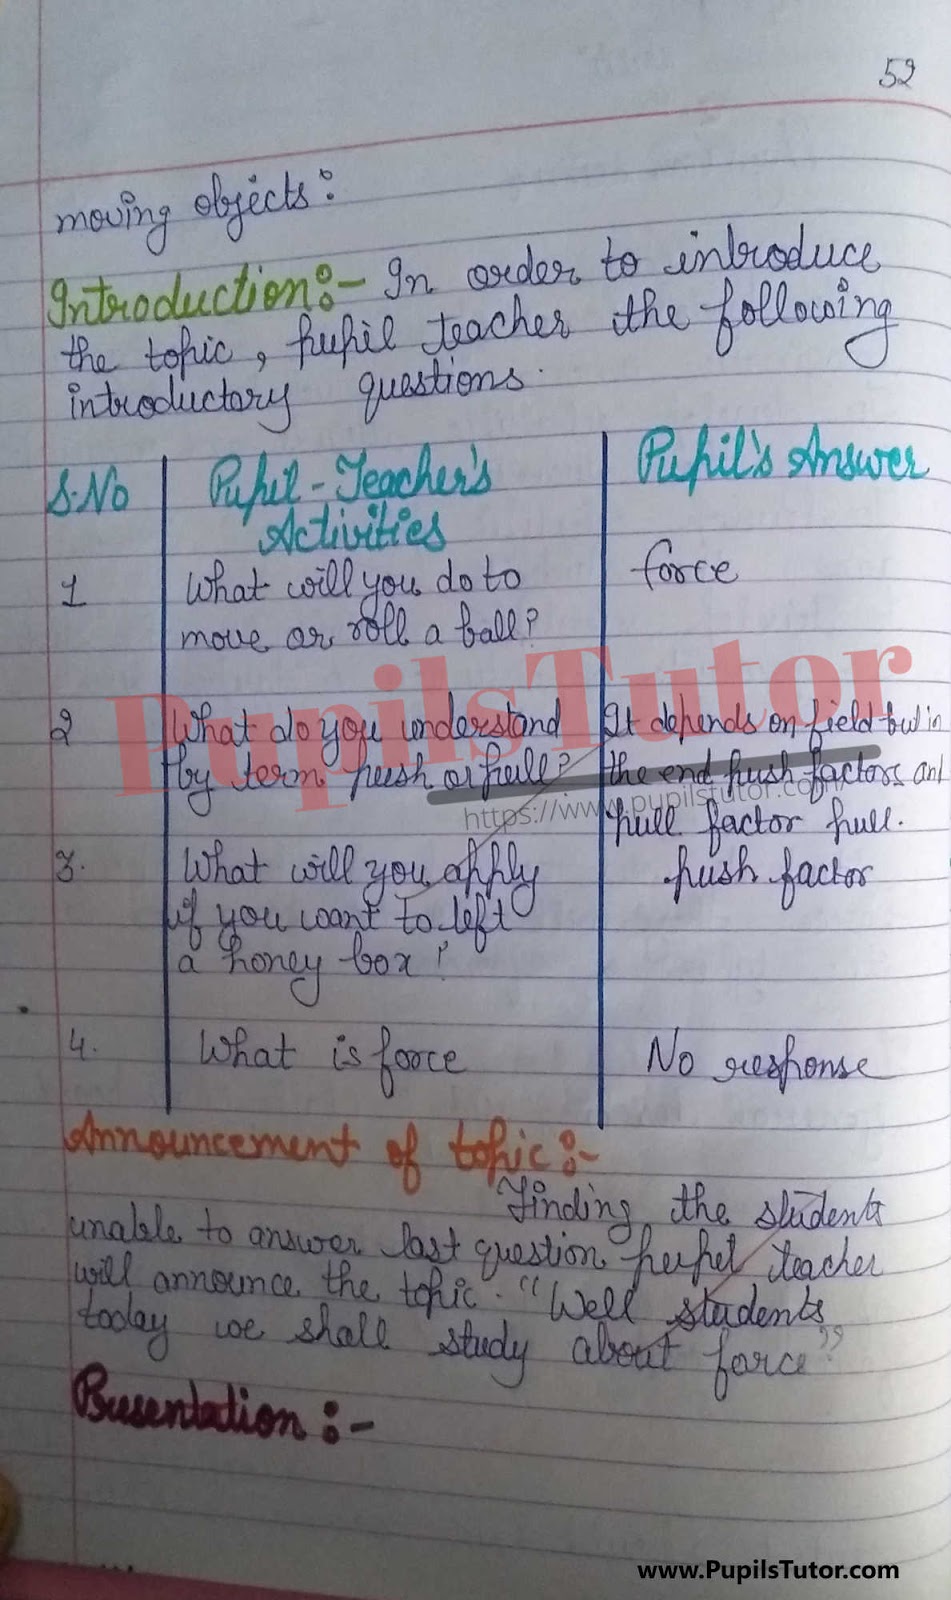 52
moving objects:
Introduction:- In order to introduce
the topic, pupil teacher the following
introductory questions.
S.No
Pupil-Teacher's
Activities
Pupil's Answer
1
What will you do to
move or roll a ball?
force
2
What do you understand
by term push or pull?
It depends on field but in
the end push factors and
pull factor pull.
3.
What will you apply
if you want to left
a honey box?
push factor
4.
What is force
No response
Announcement of topic:-
Finding the students
unable to answer last question pupil teacher
will announce the topic. "Well students
today we shall study about force"
Presentation:-
PupilsTutor
https://www.pupilstutor.com/
www.PupilsTutor.com